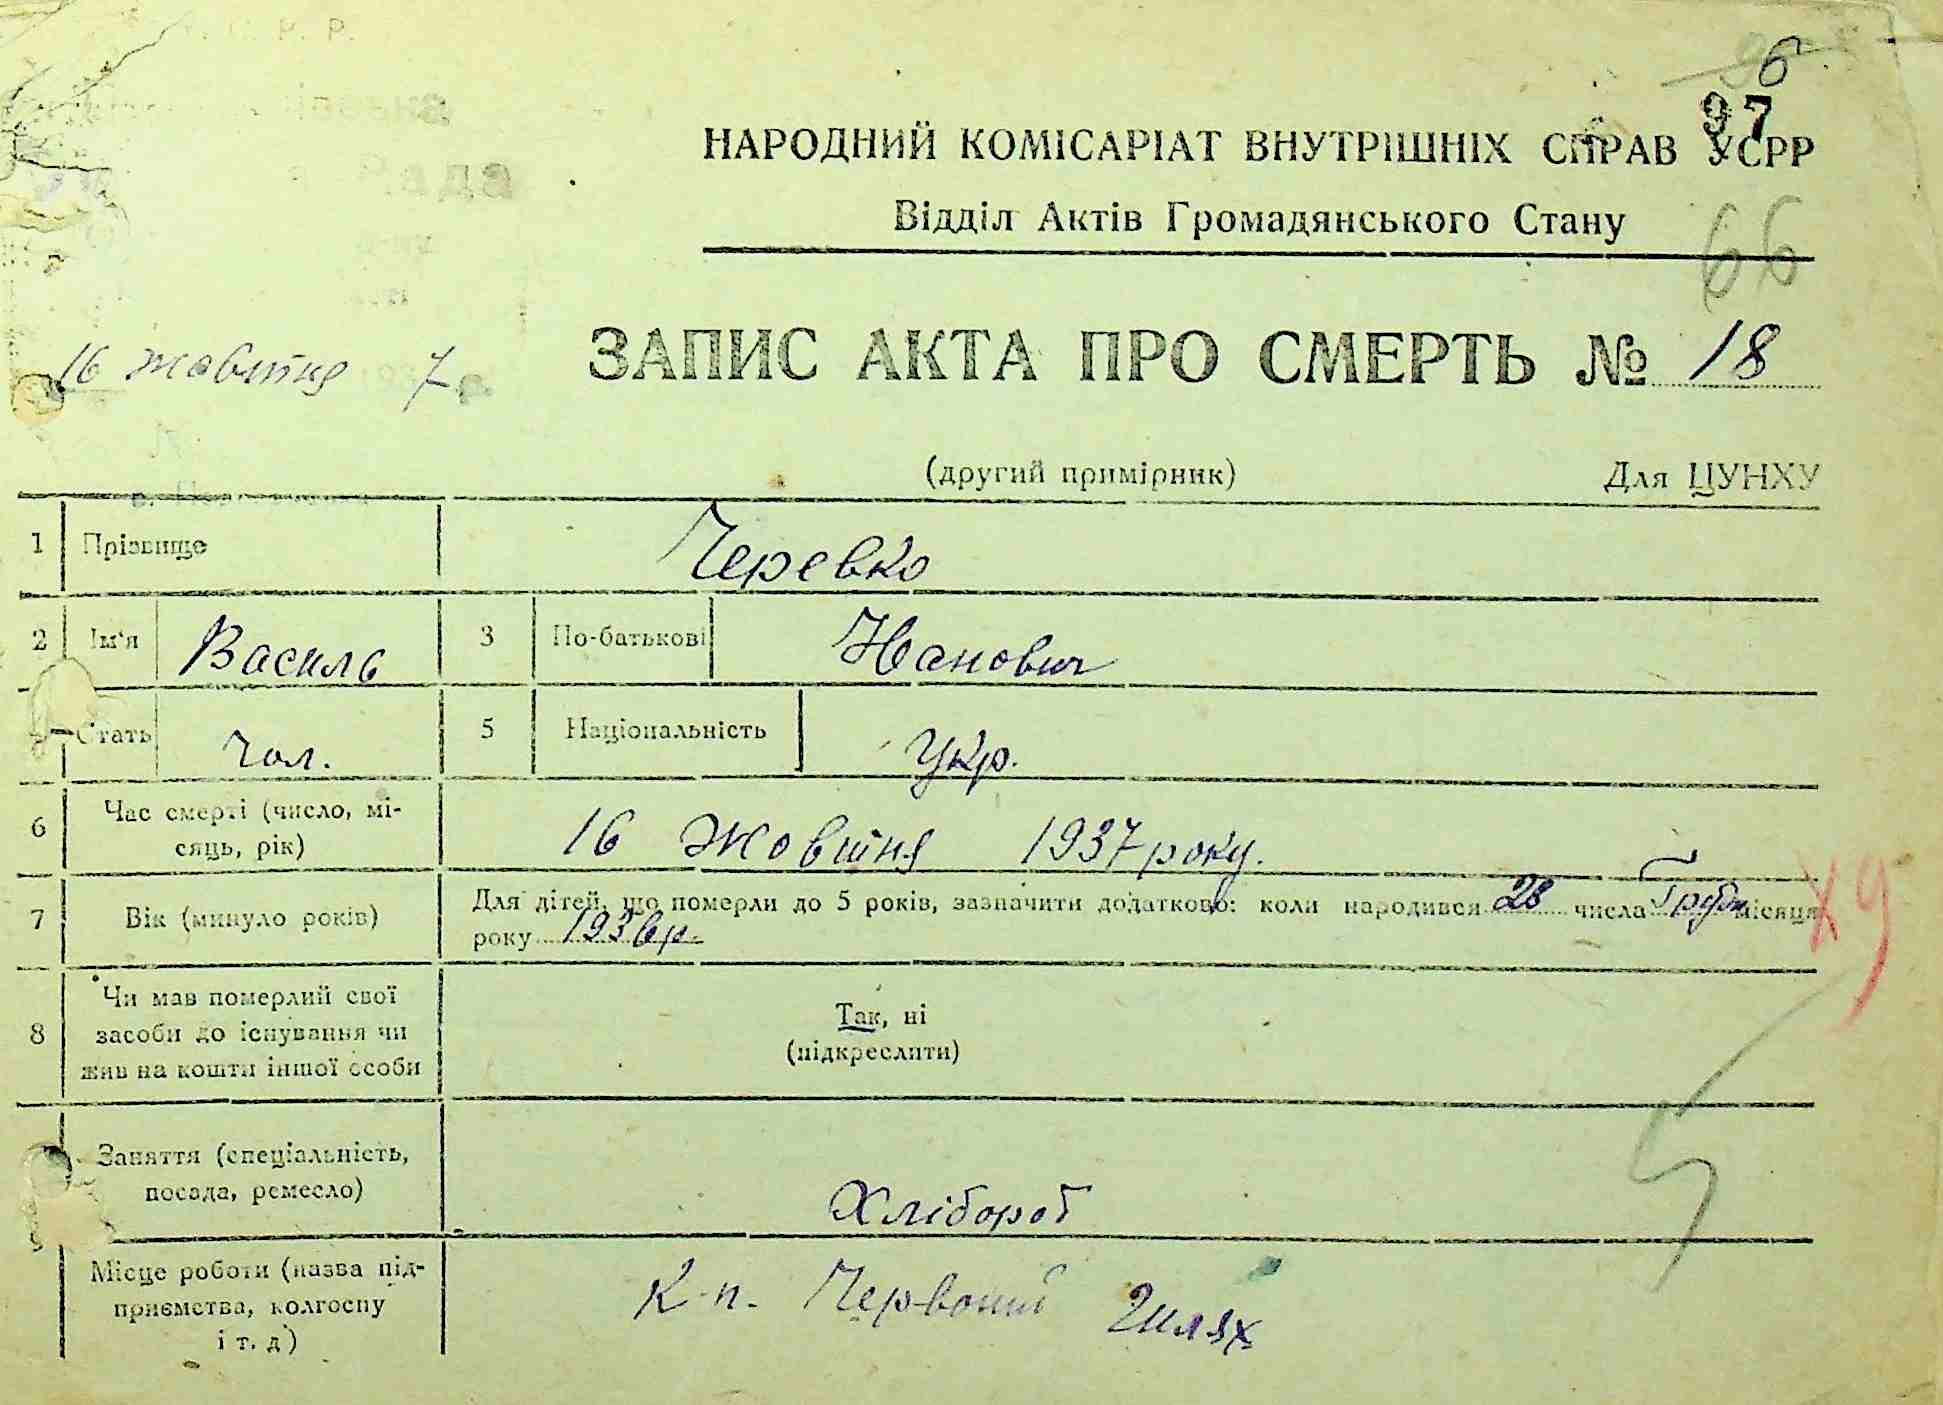 6
97
НАРОДНИЙ КОМІСАРІАТ ВНУТРІШНІХ СПРАВ УСРР
Відділ Актів Громадянського Стану
66
16 жовтня 7
ЗАПИС АКТА ПРО СМЕРТЬ № 18
(другий примірник) Для ЦУНХУ
1 Прізвище Черевко
2 Ім'я Василь 3 По-батькові Іванович
Стать Чол. 5 Національність Укр.
6 Час смерті (число, мі-
сяць, рік) 16 Жовтня 1937 року.
7 Вік (минуло років) Для дітей, що померли до 5 років, зазначити додатково: коли народився 28 числа Грудн місяця
року 1936 р.
X9
8 Чи мав померлий свої
засоби до існування чи
жив на кошти іншої особи
Так, ні
(підкреслити)
Заняття (спеціальність,
посада, ремесло) Хлібороб
Місце роботи (назва під-
приємства, колгоспу
і т. д) К-п. Червоний Шлях